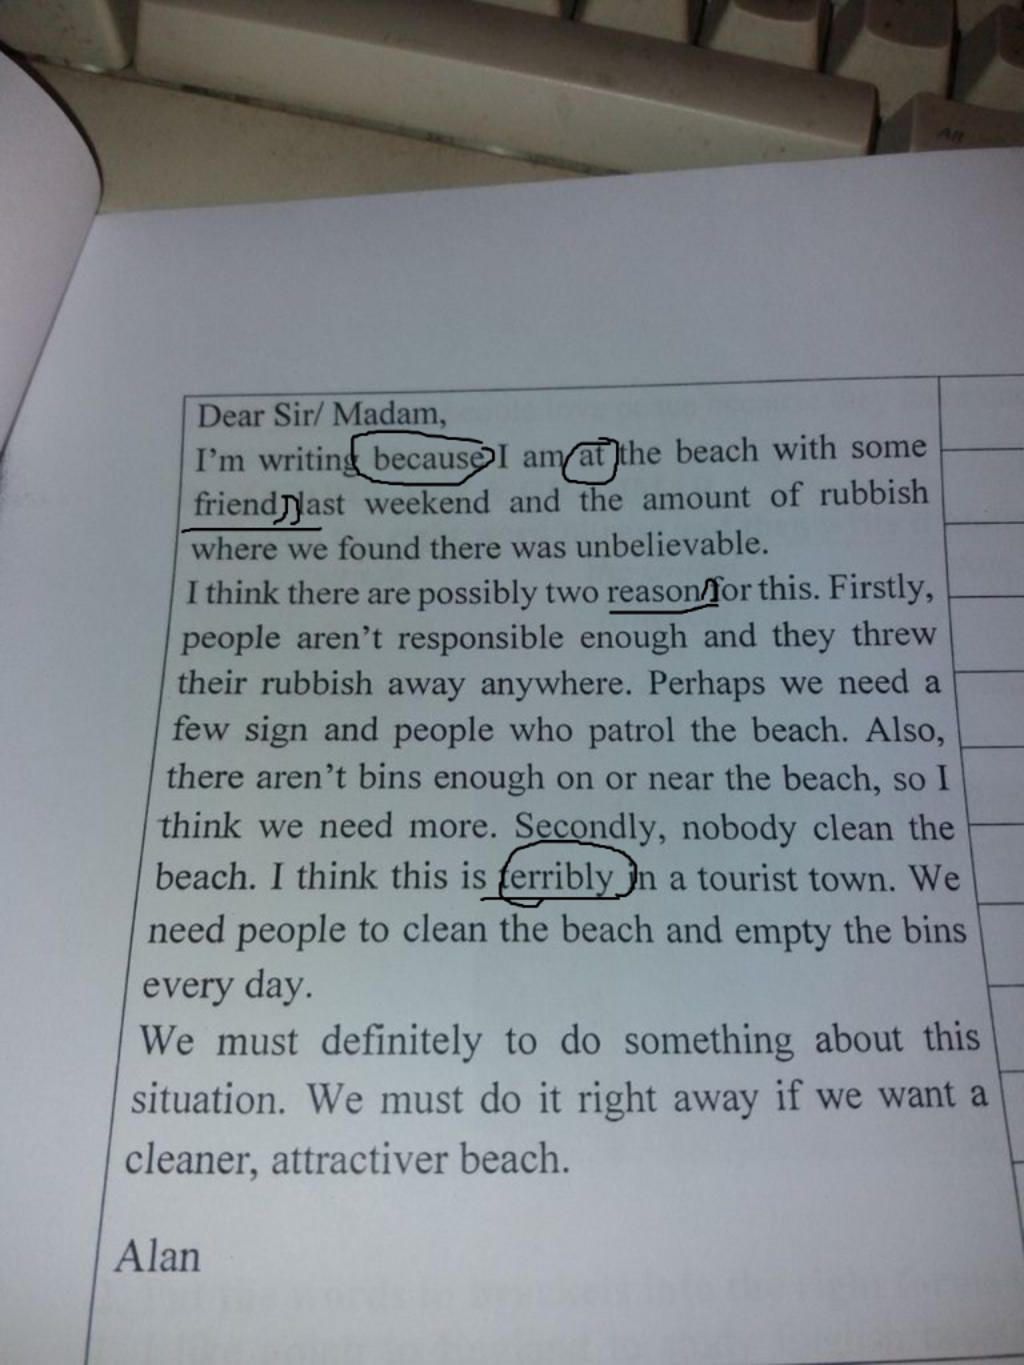 Dear Sir/ Madam,
I'm writing because I am at the beach with some
friend last weekend and the amount of rubbish
where we found there was unbelievable.
I think there are possibly two reason for this. Firstly,
people aren't responsible enough and they threw
their rubbish away anywhere. Perhaps we need a
few sign and people who patrol the beach. Also,
there aren't bins enough on or near the beach, so I
think we need more. Secondly, nobody clean the
beach. I think this is terribly in a tourist town. We
need people to clean the beach and empty the bins
every day.
We must definitely to do something about this
situation. We must do it right away if we want a
cleaner, attractiver beach.
Alan